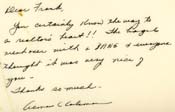 Dear Frank,
You certainly know the way to
a realtor's heart!! The bagels
were with a BANG & everyone
thought it was very nice of
you -
Thanks so much -
Coleman